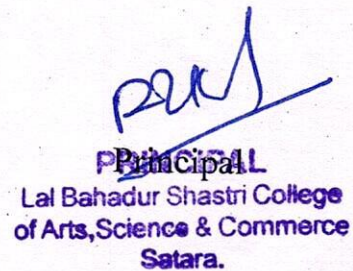 Principal
PRINCIPAL
Lal Bahadur Shastri College
of Arts,Science & Commerce
Satara.